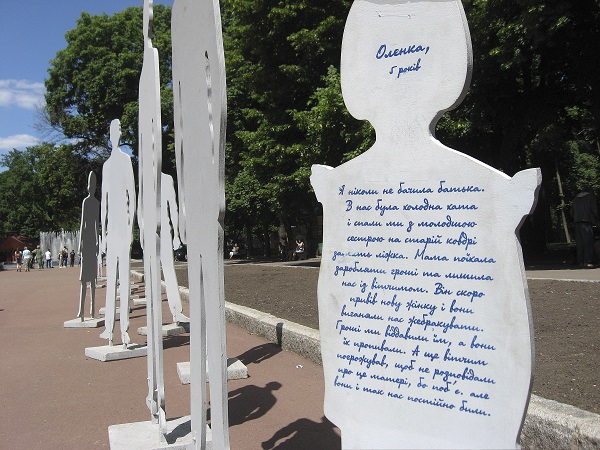 Оленка,
5 років
Я ніколи не бачила батька.
В нас була холодна хата
і спали ми з молодшою
сестрою на старій ковдрі
замість ліжка. Мата поїхала
заробляти гроші та лишила
нас із вітчимом. Він скоро
привів нову жінку і вони
виганали нас жебракувати.
Гроші ми віддавали їм, а вони
їх пропивали. А ще вітчим
погрожував, щоб не розповідали
про це матері, бо поб'є. але
вони і так нас постійно били.